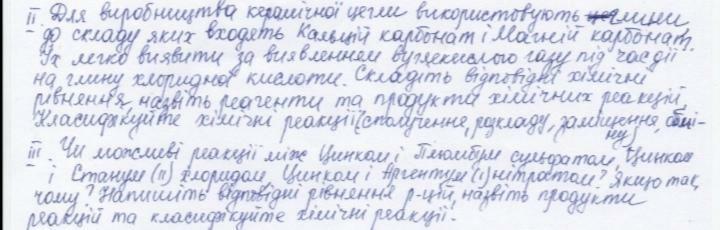 II. Для виробництва керамічної цегли використовують глини
до складу яких входять Кальцій карбонат і Магній карбонат.
Їх легко виявити за виявленням вуглекислого газу під час дії
на глину хлоридної кислоти. Складіть відповідні хімічні
рівняння, назвіть реагенти та продукти хімічних реакцій,
Класифікуйте хімічні реакції (сполучення, розкладу, заміщення, обмі-
ну)
III. Чи можливі реакції між Цинком і Плюмбум сульфатом, Цинком
і Станум (II) хлоридом, Цинком і Аргентум (I) нітратом? Якщо так,
чому? Напишіть відповідні рівняння р-цій, назвіть продукти
реакцій та класифікуйте хімічні реакції.